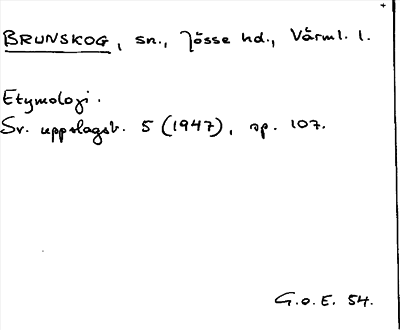 BRUNSKOG, sn., Jösse hd., Värml. l.
Etymologi.
Sv. uppslagsb. 5 (1947), sp. 107.
G.o.E. 54.